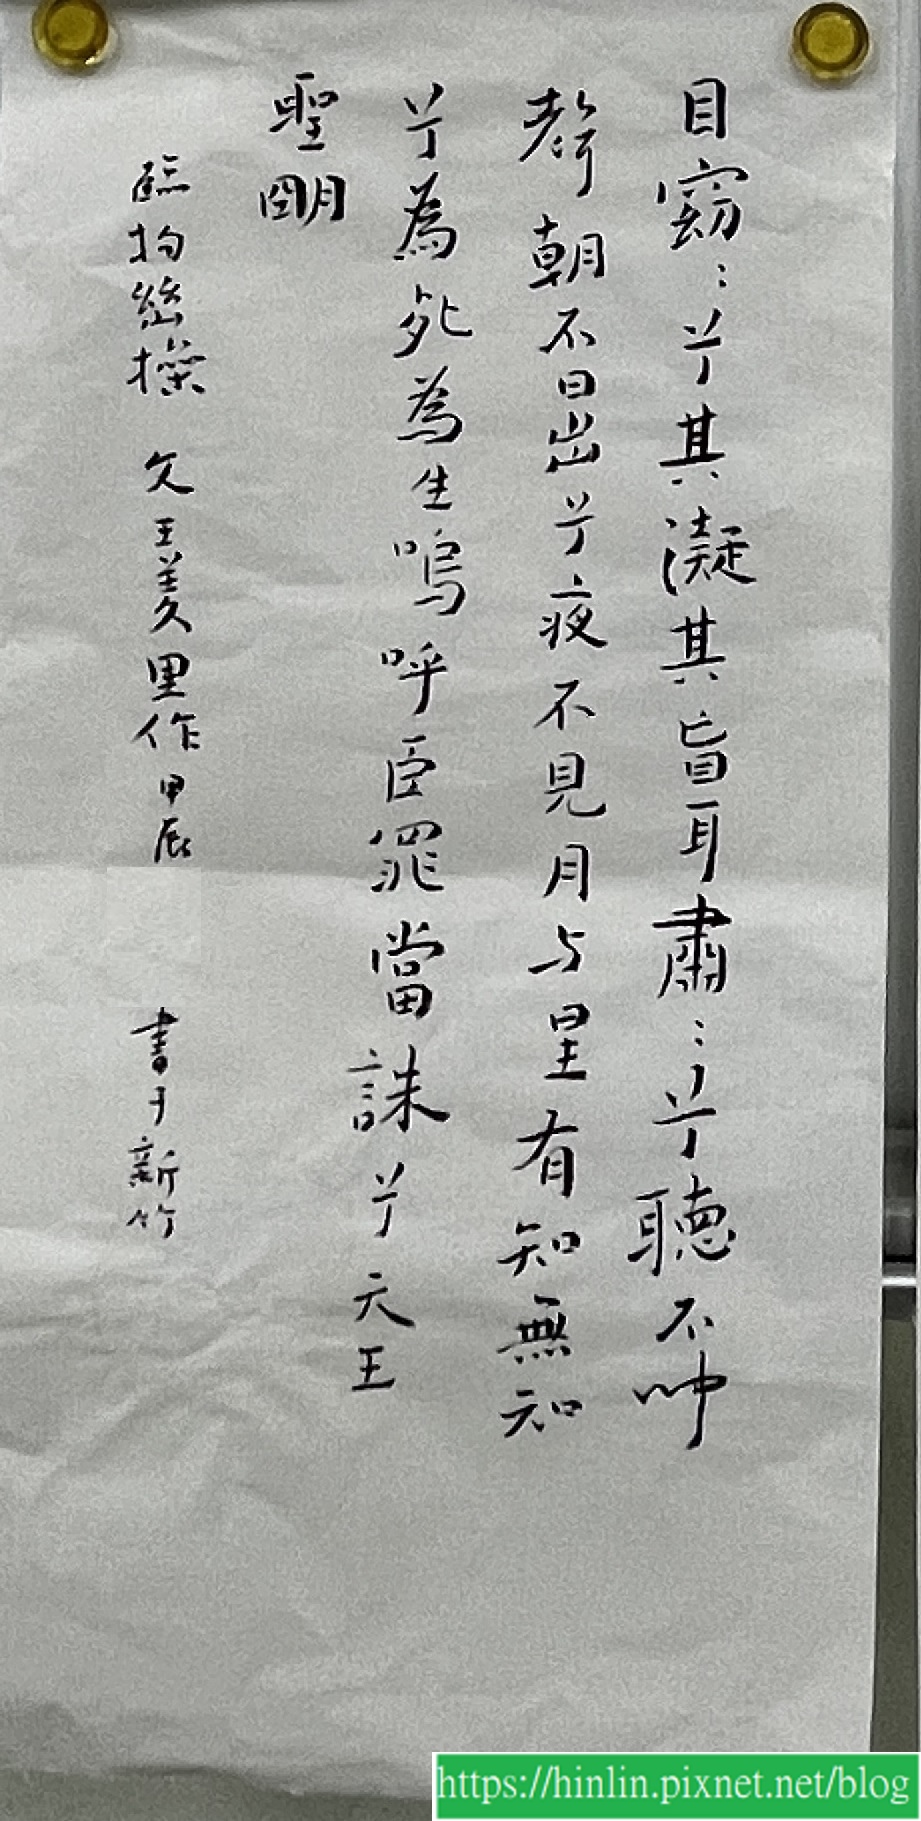 目窈〻兮其凝其盲耳肅〻兮聽不聞
聲朝不日出兮夜不見月与星有知無知
兮為死為生嗚呼臣罪當誅兮天王
聖朙
臨拘幽操 文王羑里作 甲辰 書于新竹
https://hinlin.pixnet.net/blog